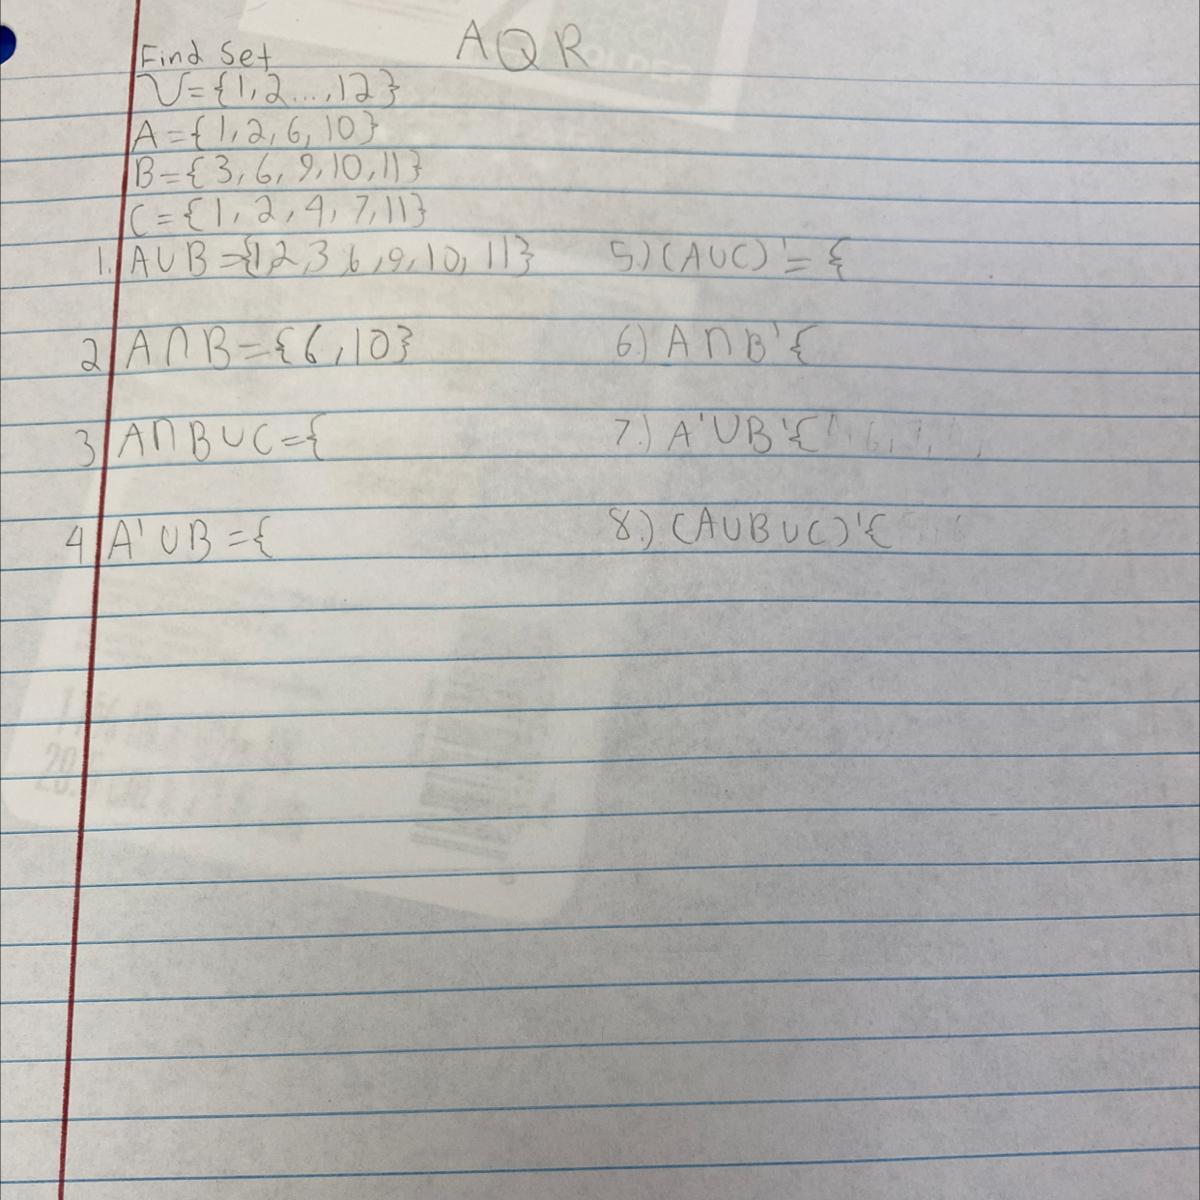 AQR
Find Set
U={1,2...,12}
A={1,2,6,10}
B={3,6,9,10,11}
C={1,2,4,7,11}
1. A∪B={1,2,3,6,9,10,11}
5.) (A∪C)'={
2 A∩B={6,10}
6.) A∩B'{
3 A∩B∪C={
7.) A'∪B'{
4 A'∪B={
8.) (A∪B∪C)'{